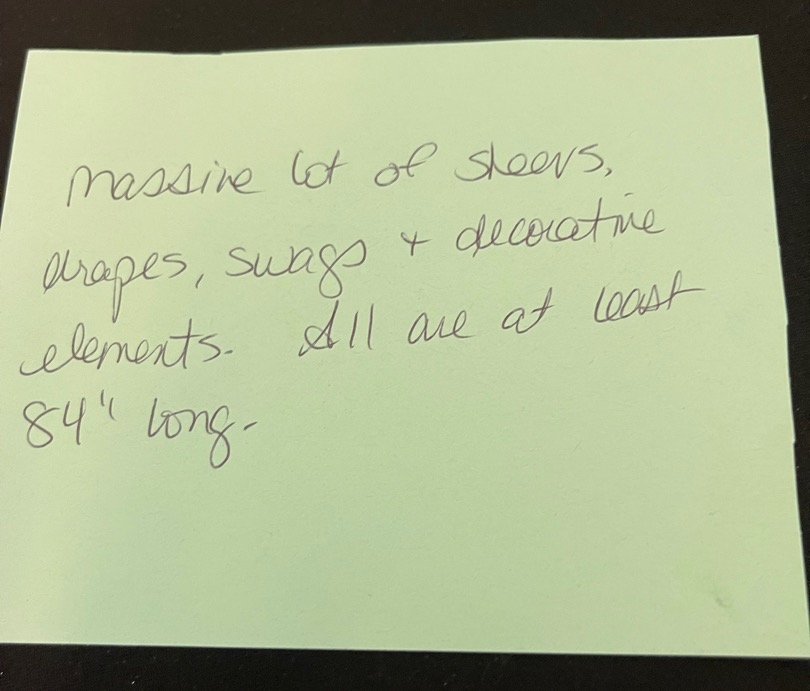 Massive lot of sheers,
drapes, swags + decorative
elements. All are at least
84" long.